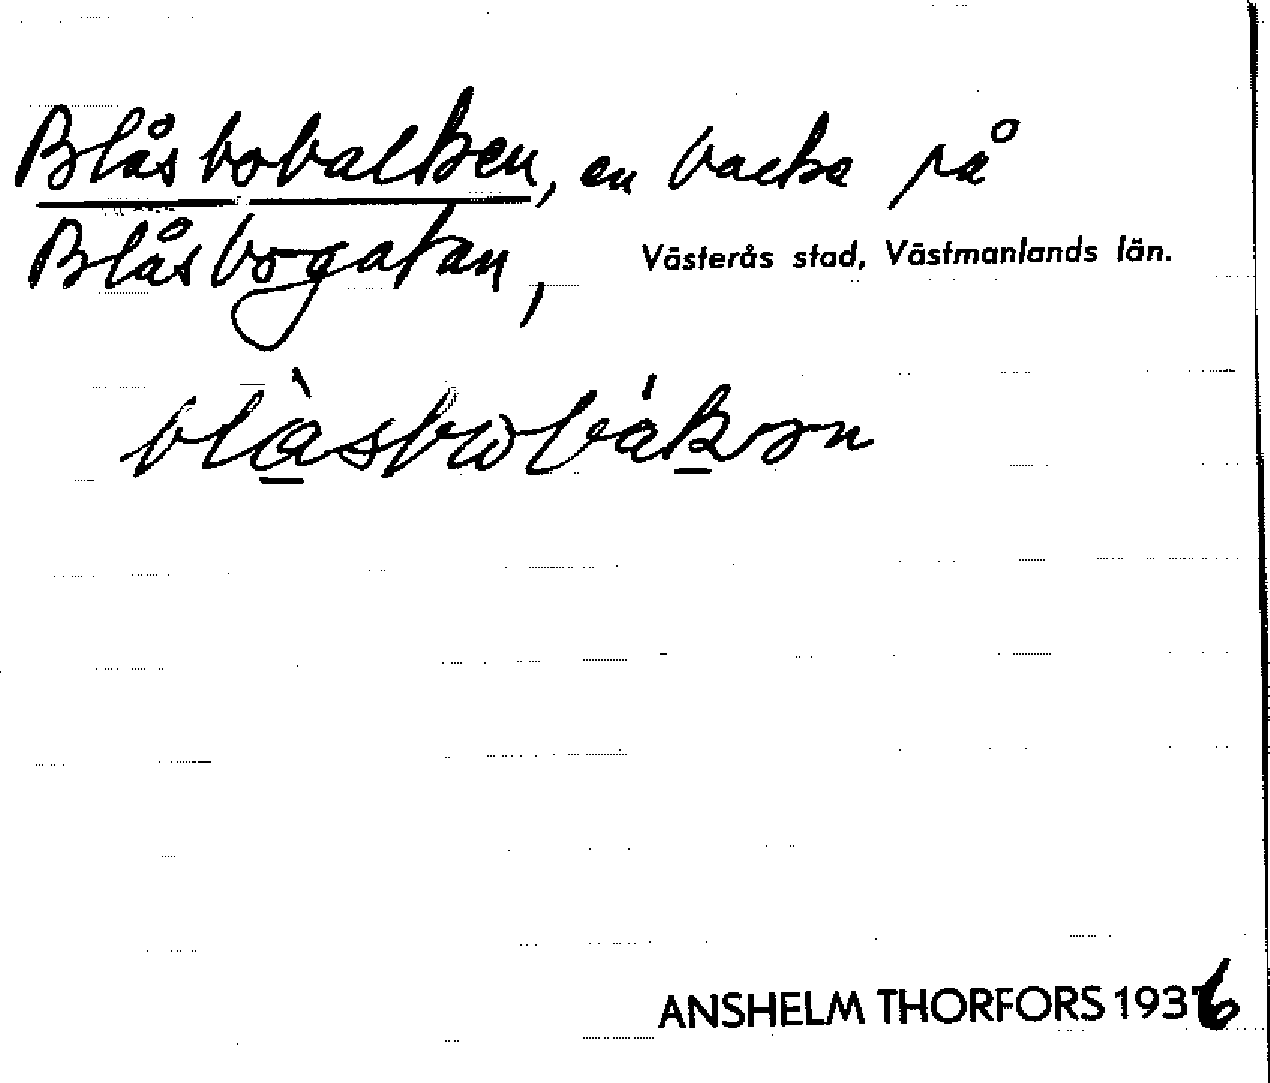 Blåsbobacken, en backe på
Blåsbogatan,
Västerås stad, Västmanlands län.
ANSHELM THORFORS 1936